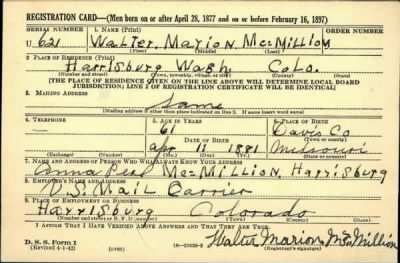 REGISTRATION CARD—(Men born on or after April 28, 1877 and on or before February 16, 1897)
SERIAL NUMBER 1. NAME (Print)
U. 621 Walter Marion McMilliom
(First) (Middle) (Last)
2. PLACE OF RESIDENCE (Print)
Harrisburg Wash. Colo.
(Number and street) (Town, township, village, or city) (County) (State)
[THE PLACE OF RESIDENCE GIVEN ON THE LINE ABOVE WILL DETERMINE LOCAL BOARD
JURISDICTION; LINE 2 OF REGISTRATION CERTIFICATE WILL BE IDENTICAL]
3. MAILING ADDRESS
Same
[Mailing address if other than place indicated on line 2. If same insert word same]
4. TELEPHONE 5. AGE IN YEARS 6. PLACE OF BIRTH
61 Davis Co
DATE OF BIRTH (Town or county)
Apr 11 1881 Missouri
(Exchange) (Number) (Mo.) (Day) (Yr.) (State or country)
7. NAME AND ADDRESS OF PERSON WHO WILL ALWAYS KNOW YOUR ADDRESS
Anna Perl McMillion, Harrisburg
8. EMPLOYER'S NAME AND ADDRESS
U.S. Mail Carrier
9. PLACE OF EMPLOYMENT OR BUSINESS
Harrisburg Colorado
(Number and street or R. F. D. number) (Town) (County) (State)
I AFFIRM THAT I HAVE VERIFIED ABOVE ANSWERS AND THAT THEY ARE TRUE.
D. S. S. Form 1
(Revised 4-1-42) (over) Walter Marion McMillion
(Registrant's signature)